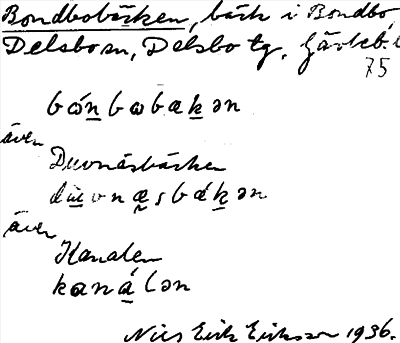 Bondbobäcken, bäck i Bondbo,
Delsbo sn, Delsbo tg, Gävleb. l
75
bónbωbækən
även
Duvnäsbäcken
duvnæsbǽkən
även
Kanalen
kanálən
Nils Erik Eriksson 1936.